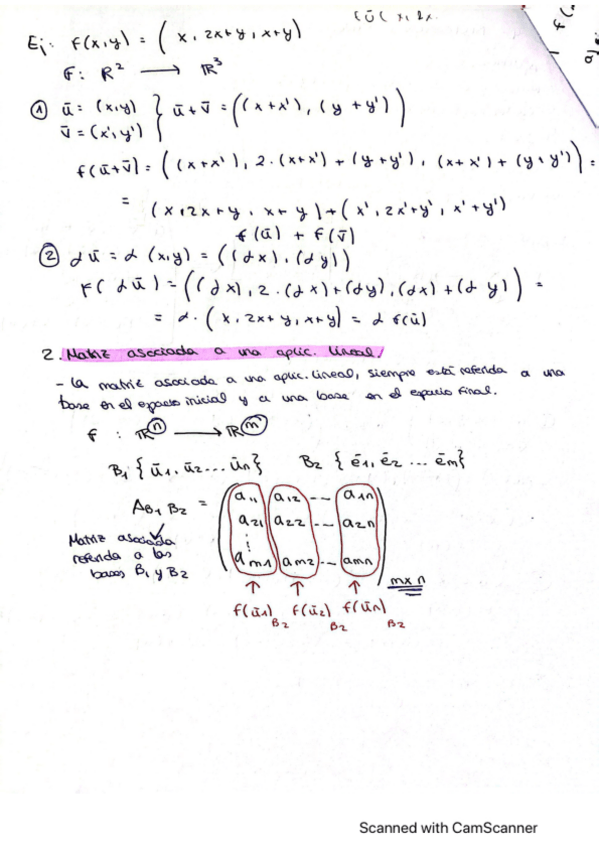 Ej: f(x,y) = (x, 2x+y, x+y)
F: R² → R³
① ū = (x,y) } ū+v̄ = ((x+x'), (y+y'))
v̄ = (x',y')
f(ū+v̄) = ((x+x'), 2·(x+x') + (y+y'), (x+x') + (y+y')) =
= (x, 2x+y, x+y) + (x', 2x'+y', x'+y')
f(ū) + f(v̄)
② αū = α(x,y) = ((αx), (αy))
F(αū) = ((αx), 2·(αx)+(αy), (αx)+(αy)) =
= α·(x, 2x+y, x+y) = α f(ū)
2. Matriz asociada a una aplic. lineal/
- La matriz asociada a una aplic. lineal, siempre está referida a una
base en el espacio inicial y a una base en el espacio final.
f : Rⁿ → Rᵐ
B₁ {ū1, ū2 ... ūn} B₂ {ē1, ē2 ... ēm}
A B₁ B₂ = ( a11 a12 -- a1n
a21 a22 -- a2n
⋮
am1 am2 -- amn ) mxn
Matriz asociada
referida a las
bases B₁ y B₂
↑ ↑ ↑
f(ū1) B₂ f(ū2) B₂ f(ūn) B₂
Scanned with CamScanner